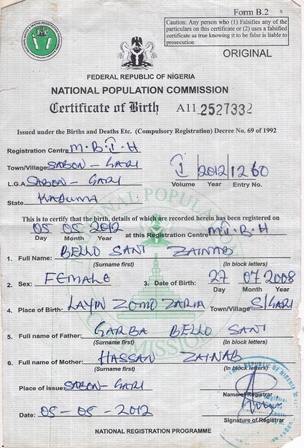 Form B.2
Caution: Any person who (1) Falsifies any of the
particulars on this certificate or (2) uses a falsified
certificate as true knowing it to be false is liable to
prosecution
ORIGINAL
FEDERAL REPUBLIC OF NIGERIA
NATIONAL POPULATION COMMISSION
Certificate of Birth A11 2527332
Issued under the Births and Deaths Etc. (Compulsory Registration) Decree No. 69 of 1992
Registration Centre M.B.I.H
Town/Village SABON-GARI I 2012 1260
L.G.A SABON-GARI Volume Year Entry No.
State KADUNA
This is to certify that the birth, details of which are recorded herein has been registered on
05 05 2012 at this Registration Centre
Day Month Year
1. Full Name: BELLO SANI ZAINAB
(Surname first) (In block letters)
2. Sex: FEMALE 3. Date of Birth: 27 07 2008
Day Month Year
4. Place of Birth: LAYIN ZOMO ZARIA Town/Village S/GARI
5. Full name of Father: GARBA BELLO SANI
(Surname first) (In block letters)
6. Full name of Mother: HASSAN ZAINAB
(Surname first) (In block letters)
Place of Issue: SABON-GARI
Name of Registrar
Date: 05-05-2012
Signature of Registrar
NATIONAL REGISTRATION PROGRAMME